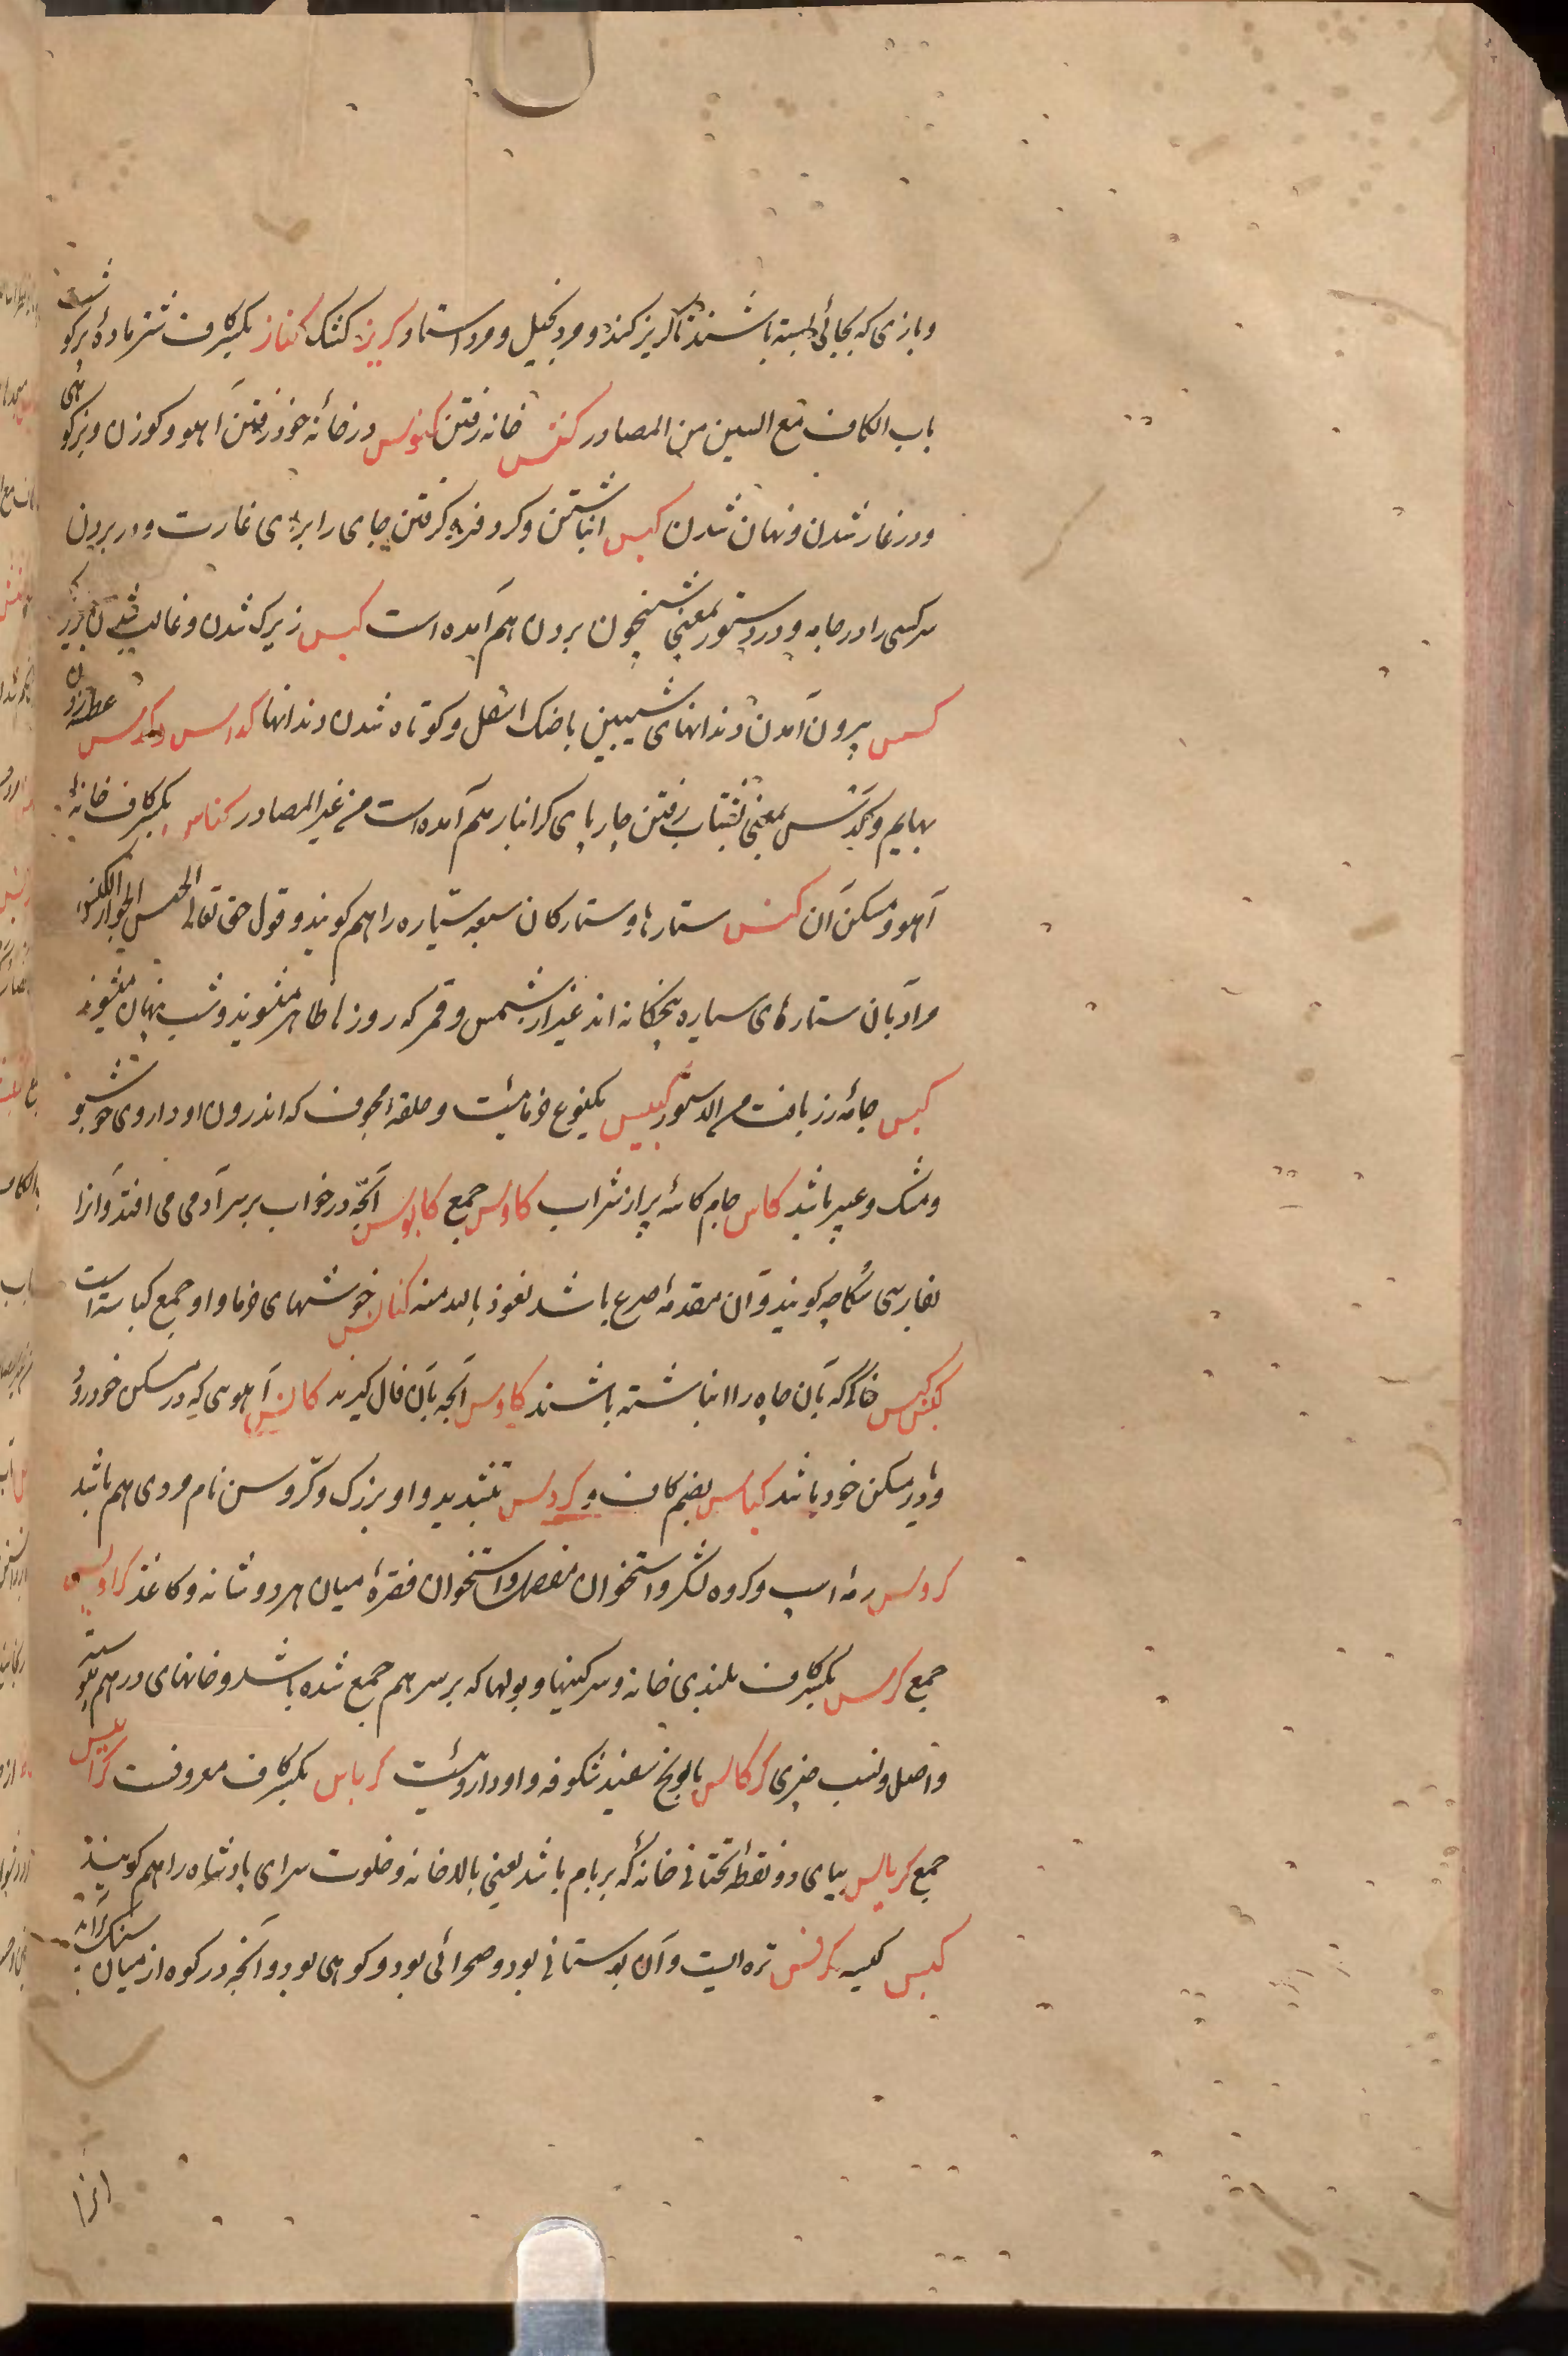 وبازی که بجائی بسته باشند تا کریز کند و مرد بخیل و مرد استاد کریز کنک کناز بکسر کاف شتر مادهٔ پر کوشت
باب الکاف مع السین من المصادر کنس خانه رفتن کنوس در خانهٔ خود رفتن آهو و کوزن و بز کوهی
و در غار شدن و نهان شدن کبس انباشتن و کرد فرو کرفتن جای را برای غارت و در بردن
سر کسی را در جامه و در دستور بمعنی شبیخون بردن هم آمده است کیس زیرک شدن و غالب شدن بزیرکی
کسس بیرون آمدن دندانهای شیبین با حنک اسفل و کوتاه شدن دندانها کداس و کدس عطسه زدن
بهایم و کدس بمعنی بشتاب رفتن چارپای کرانبار هم آمده است من غیر المصادر کناس بکسر کاف خانهٔ
آهو و مسکن آن کنس ستارها و ستارکان سبعه سیاره را هم کویند و قول حق تعالی الخنس الجوار الکنس
مراد بآن ستارهای سیاره پنجکانه اند غیر از شمس و قمر که روزها ظاهر میشوند و شب پنهان میشوند
کبس جامهٔ زربافت من الدستور کبیس یکنوع خرمائیست و حلقهٔ مجوف که اندرون او داروی خوشبو
و مشک و عبیر باشد کاس جام کاسهٔ پر از شراب کاوس جمع کابوس آنچه در خواب بر سر آدمی می افتد و آنرا
بفارسی سکاچه کویند و آن مقدمهٔ صرع باشد نعوذ بالله منه کبایس خوشهای خرما و او جمع کباسه است
کبس خاک که بآن چاه را انباشته باشند کادس آنچه بآن فال کیرند کانس آهوی که در مسکن خود رود
و در مسکن خود باشد کباس بضم کاف و کروس بتشدید واو بزرک و کروس نام مردی هم باشد
کردوس رمهٔ اسب و کروه لشکر و استخوان مفصل و استخوان فقرهٔ میان هر دو شانه و کاغذ کرادیس
جمع کرس بکسر کاف بلندی خانه و سرکینها و بولها که بر سر هم جمع شده باشد و خانهای در هم پیوسته
و اصل و نسب چیزی کرکاس بابونج سفید شکوفه و او داروئیست کرباس بکسر کاف معروفست کرابیس
جمع کریاس بیای دو نقطهٔ تحتانی خانهٔ که بر بام باشد یعنی بالاخانه و خلوت سرای پادشاه را هم کویند
کیس کیسه کرفس تره ایست و آن بوستانی بود و صحرائی بود و کوهی بود و آنچه در کوه از میان سنک برآید
آنرا